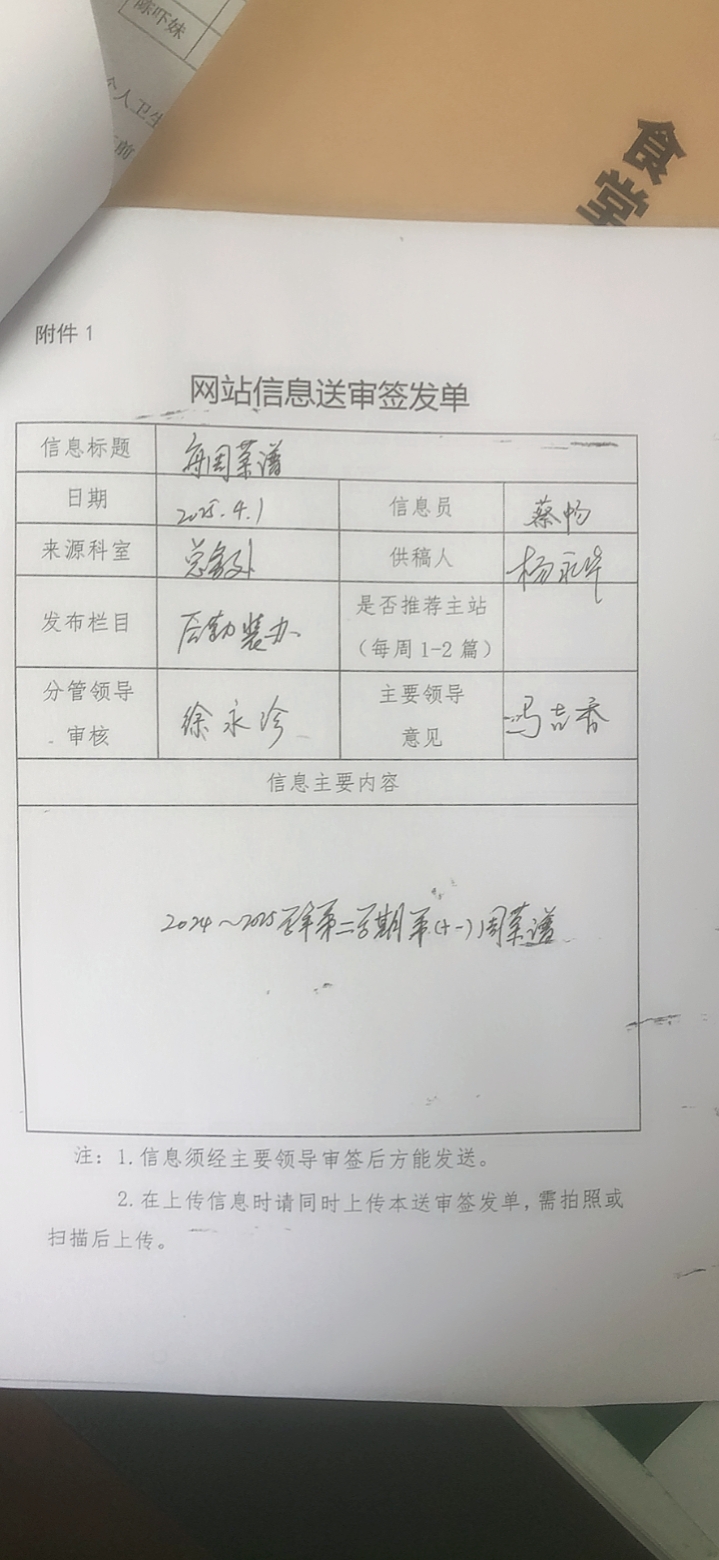 陈吓妹
个人卫生
前
食堂
附件 1
网站信息送审签发单
信息标题 每周菜谱
日期 2025.4.1 信息员 蔡畅
来源科室 总务处 供稿人 杨永华
发布栏目 后勤装办 是否推荐主站
（每周 1-2 篇）
分管领导 徐永珍 主要领导 冯吉香
审核 意见
信息主要内容
2024～2025学年第二学期第(十一)周菜谱
注：1.信息须经主要领导审签后方能发送。
2.在上传信息时请同时上传本送审签发单,需拍照或
扫描后上传。